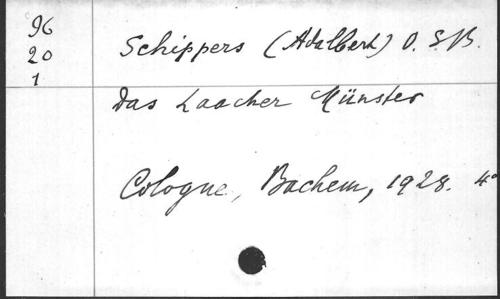 96
20
1
Schippers (Adalbert) O.S.B.
Das Laacher Münster
Cologne, Bachem, 1928. 4°